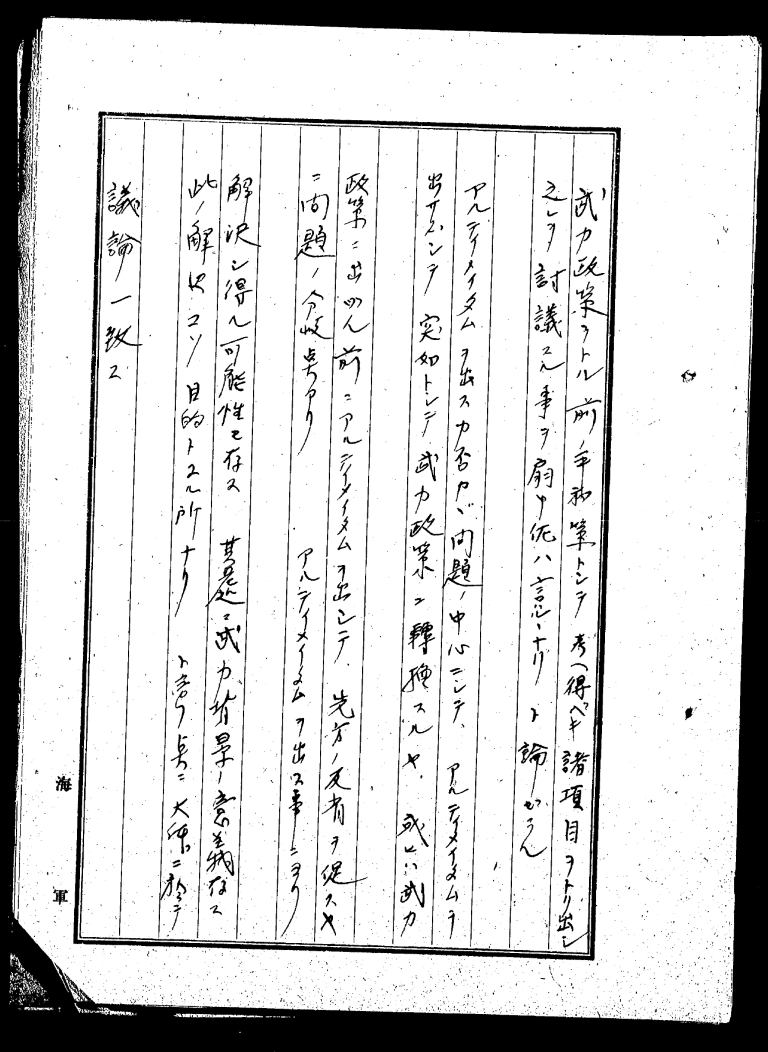 武力政策ヲトル前ノ手初策トシテ考ヘ得ベキ諸項目ヲトリ出シ
之レヲ討議スル事ヲ
ト論ぜらる
アルティメイタムヲ出スカ否カガ問題ノ中心ニシテ、アルティメイタムヲ
出サズシテ突如トシテ武力政策ニ轉換スルヤ、或ヒハ武力
政策ニ出ヅル前ニアルティメイタムヲ出シテ、先方ノ反省ヲ促スヤ
ニ問題ノ分岐点アリ
アルティメイタムヲ出ス事ニヨリ
解決シ得ル可能性モ存ス 其処ニ武力背景ノ意義存ス
此ノ解決コソ目的トスル所ナリ ト言フ点ニ大体ニ於テ
議論一致ス
海軍